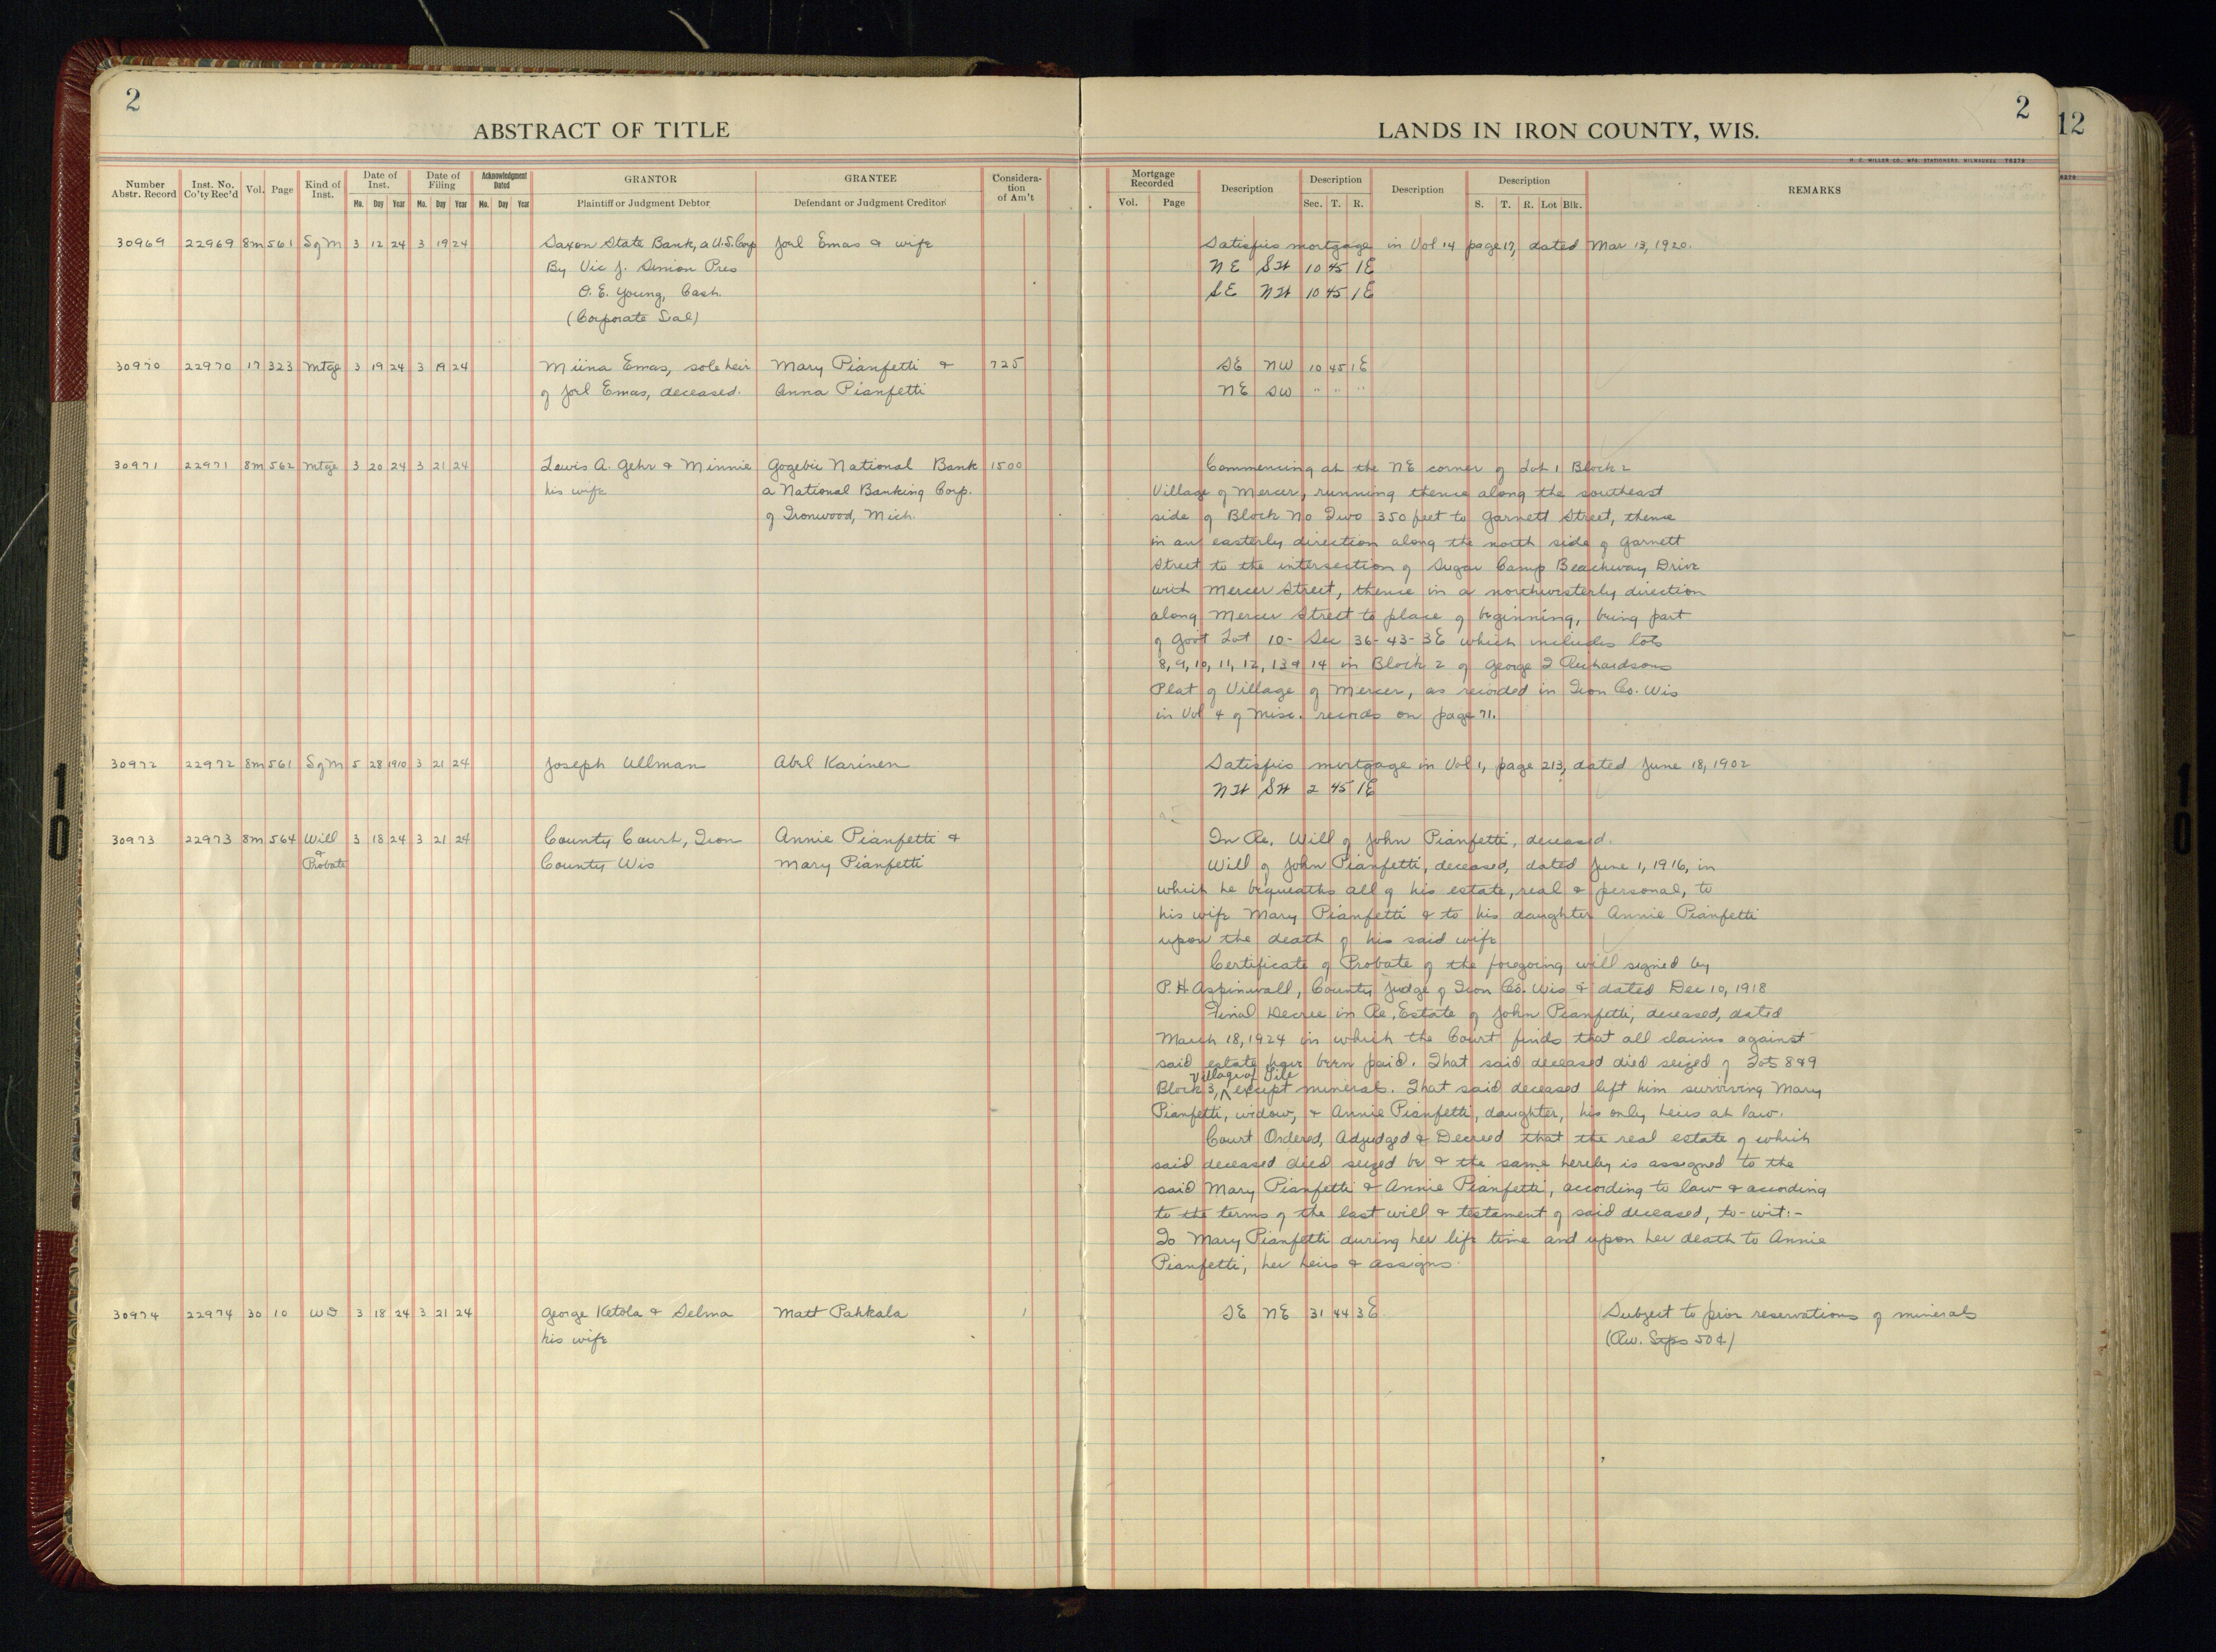 2
ABSTRACT OF TITLE
Number Abstr. Record
Inst. No. Co'ty Rec'd
Vol.
Page
Kind of Inst.
Date of Inst.
Mo. Day Year
Date of Filing
Mo. Day Year
Acknowledgment Dated
Mo. Day Year
GRANTOR
Plaintiff or Judgment Debtor
GRANTEE
Defendant or Judgment Creditor
Consideration of Am't
30969 22969 8m 561 SqM 3 12 24 3 19 24 Saxon State Bank, a U.S. Corp Joel Emas & wife
By Vic J. Simion Pres
O. E. Young, Cash.
(Corporate Seal)
30970 22970 17 323 Mtge 3 19 24 3 19 24 Miina Emas, sole heir Mary Pianfetti & 725
of Joel Emas, deceased. Anna Pianfetti
30971 22971 8m 562 Mtge 3 20 24 3 21 24 Lewis A. Gehr & Minnie Gogebic National Bank 1500
his wife a National Banking Corp.
of Ironwood, Mich.
30972 22972 8m 561 SqM 5 28 1910 3 21 24 Joseph Ullman Abel Karinen
30973 22973 8m 564 Will 3 18 24 3 21 24 County Court, Iron Annie Pianfetti &
& Probate County Wis Mary Pianfetti
30974 22974 30 10 WD 3 18 24 3 21 24 George Ketola & Selma Matt Pahkala 1
his wife
2
LANDS IN IRON COUNTY, WIS.
H. C. MILLER CO., MFG. STATIONERS, MILWAUKEE 78279
Mortgage Recorded
Vol. Page
Description
Description
Sec. T. R.
Description
Description
S. T. R. Lot Blk.
REMARKS
Satisfies mortgage in Vol 14 page 17, dated Mar 13, 1920.
NE SW 10 45 1E
SE NW 10 45 1E
SE NW 10 45 1E
NE SW " " "
Commencing at the NE corner of Lot 1 Block 2
Village of Mercer, running thence along the southeast
side of Block No Two 350 feet to Garnett Street, thence
in an easterly direction along the north side of Garnett
Street to the intersection of Sugar Camp Beachway Drive
with Mercer Street, thence in a northwesterly direction
along Mercer Street to place of beginning, being part
of Gov't Lot 10- Sec 36-43-3E which includes lots
8, 9, 10, 11, 12, 13 & 14 in Block 2 of George Richardsons
Plat of Village of Mercer, as recorded in Iron Co. Wis
in Vol 4 of Misc. records on page 71.
Satisfies mortgage in Vol 1, page 213, dated June 18, 1902
NW SW 2 45 1E
In Re. Will of John Pianfetti, deceased.
Will of John Pianfetti, deceased, dated June 1, 1916, in
which he bequeaths all of his estate, real & personal, to
his wife Mary Pianfetti & to his daughter Annie Pianfetti
upon the death of his said wife
Certificate of Probate of the foregoing will signed by
P. H. Aspinwall, County Judge of Iron Co. Wis & dated Dec 10, 1918
Final Decree in Re, Estate of John Pianfetti, deceased, dated
March 18, 1924 in which the Court finds that all claims against
said estate have been paid. That said deceased died seized of Lots 8&9
Village of Tile
Block 3, except minerals. That said deceased left him surviving Mary
Pianfetti, widow, & Annie Pianfetti, daughter, his only heirs at law.
Court Ordered, Adjudged & Decreed that the real estate of which
said deceased died seized be & the same hereby is assigned to the
said Mary Pianfetti & Annie Pianfetti, acording to law & acording
to the terms of the last will & testament of said deceased, to-wit:-
To Mary Pianfetti during her life time and upon her death to Annie
Pianfetti, her heirs & assigns.
SE NE 31 44 3E Subject to prior reservations of minerals
(Rev. Stps 50¢)
12
10
10